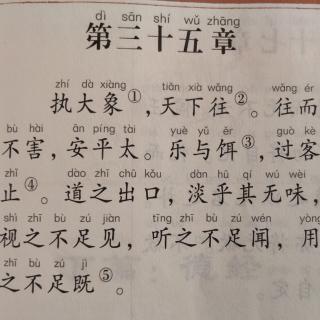 dì sān shí wǔ zhāng
第三十五章
zhí dà xiàng tiān xià wǎng wǎng ér
执大象①,天下往②。往而
bù hài ān píng tài yuè yǔ ěr guò kè
不害,安平太。乐与饵③,过客
zhǐ dào zhī chū kǒu dàn hū qí wú wèi
止④。道之出口,淡乎其无味,
shì zhī bù zú jiàn tīng zhī bù zú wén yòng
视之不足见,听之不足闻,用
zhī bù zú jì
之不足既⑤。